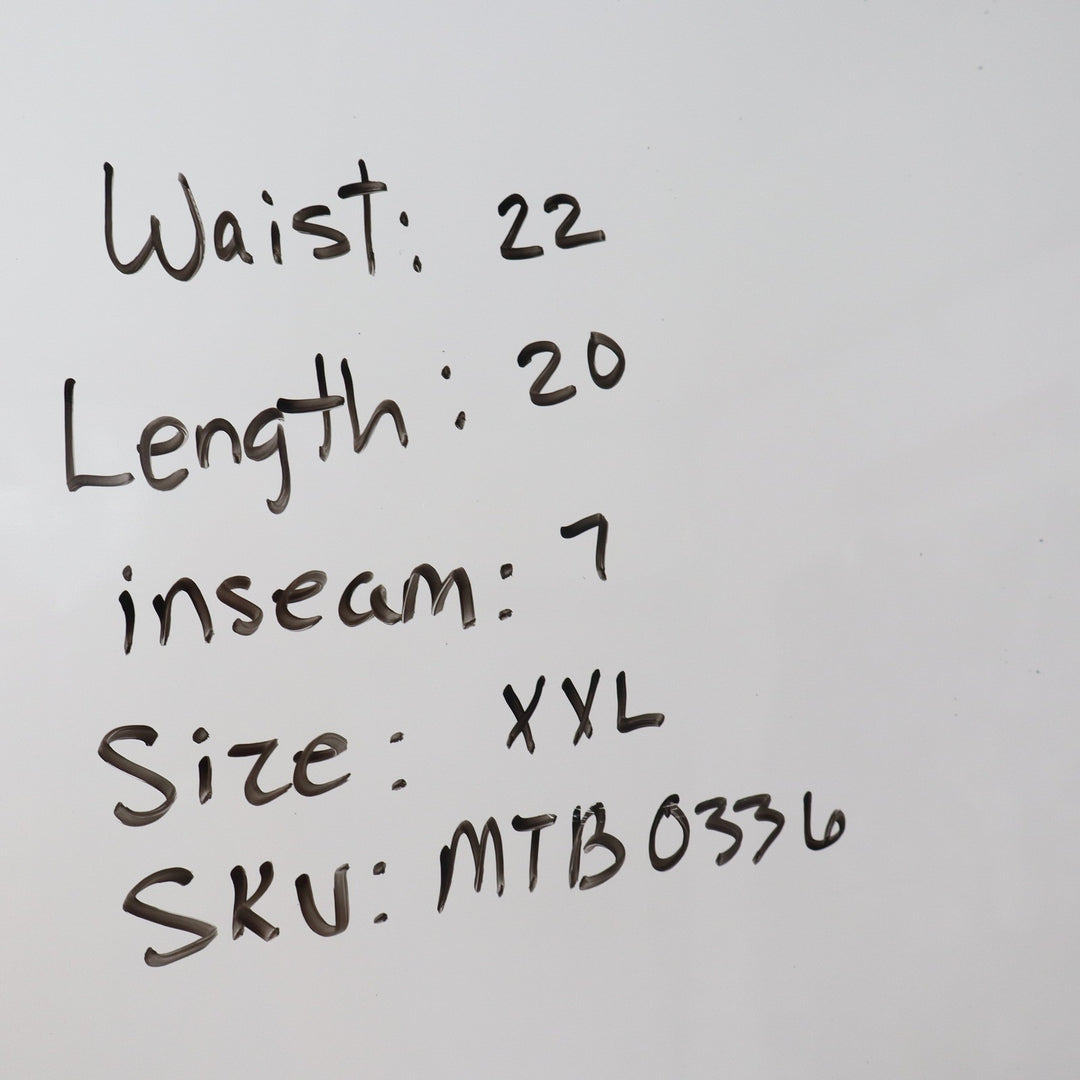 Waist: 22
Length: 20
inseam: 7
Size: XXL
SKU: MTB0336